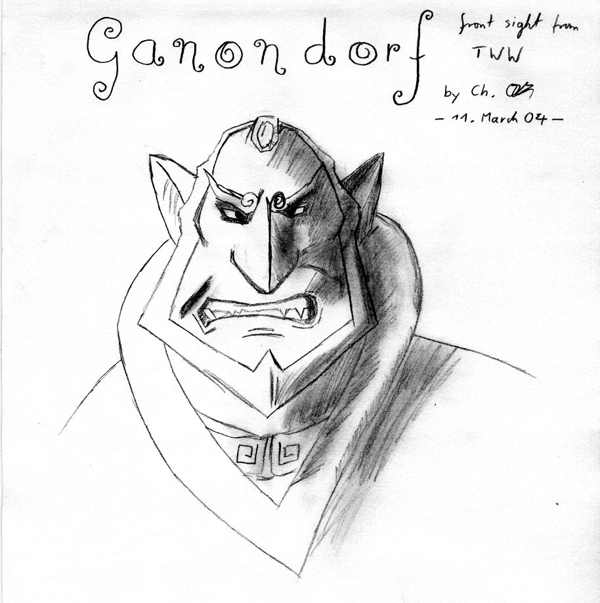 Ganondorf
front sight from
TWW
by Ch.
- 11. March 04 -